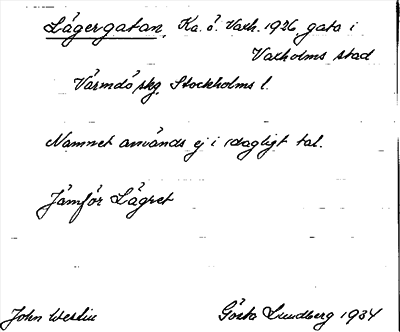 Lågergatan, Ka. ö. Vaxh. 1926, gata i
Vaxholms stad
Värmdö skg, Stockholms l.
Namnet används ej i dagligt tal.
Jämför Lägret
John Westin
Gösta Lundberg 1934